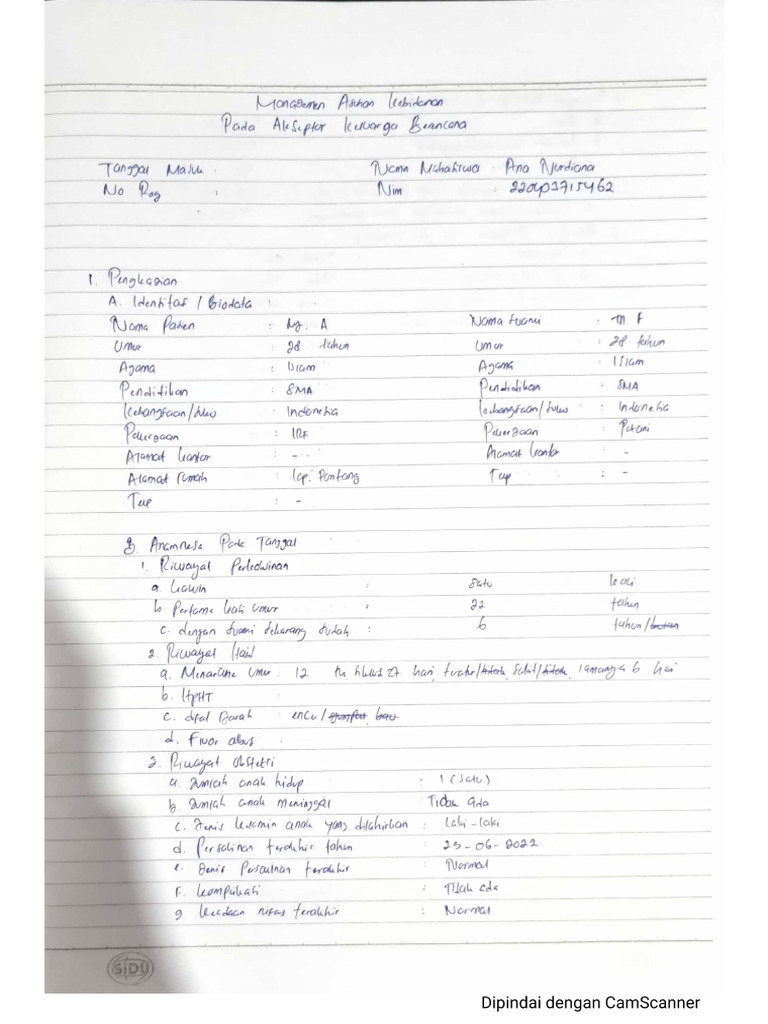 Manajemen Asuhan Kebidanan
Pada Akseptor Keluarga Berencana
Tanggal Masuk : Nama Mahasiswa : Ana Nurdiana
No Reg : Nim : 220401715462
1. Pengkajian
A. Identitas / Biodata :
Nama Pasien : Ny. A Nama Suami : Tn F
Umur : 28 tahun Umur : 28 tahun
Agama : Islam Agama : Islam
Pendidikan : SMA Pendidikan : SMA
Kebangsaan/suku : Indonesia Kebangsaan/suku : Indonesia
Pekerjaan : IRT Pekerjaan : Petani
Alamat kantor : - Alamat kantor : -
Alamat rumah : kp. Pontang Telp : -
Telp : -
B. Anamnesa Pada Tanggal
1. Riwayat Perkawinan
a. Kawin : Satu kali
b. Pertama kali umur : 22 tahun
c. dengan suami sekarang sudah : 6 tahun/bulan
2. Riwayat Haid
a. Menarche Umur 12 th, siklus 27 hari, teratur/tidak, sakit/tidak, lamanya 6 hari
b. HPHT :
c. Sifat Darah : encer/gumpal bau
d. Fluor albus :
3. Riwayat obstetri
a. Jumlah anak hidup : 1 (satu)
b. Jumlah anak meninggal : Tidak ada
c. Jenis kelamin anak yang dilahirkan : Laki-laki
d. Persalinan terakhir tahun : 25-06-2022
e. Jenis Persalinan terakhir : Normal
f. komplikasi : Tidak ada
g. keadaan nifas terakhir : Normal
SiDU
Dipindai dengan CamScanner